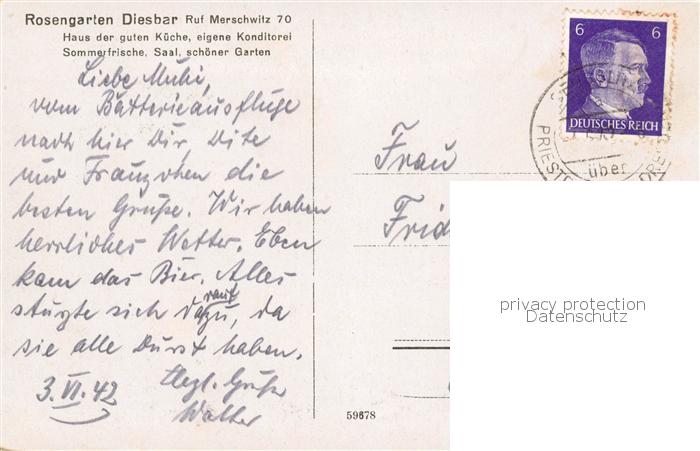 Rosengarten Diesbar Ruf Merschwitz 70
Haus der guten Küche, eigene Konditorei
Sommerfrische, Saal, schöner Garten
Liebe Muhi,
vom Batterieausfluge
nach hier Dir, Dite
und Franzchen die
besten Grüße. Wir haben
herrliches Wetter. Eben
kam das Bier. Alles
stürzte sich darauf, da
sie alle Durst haben.
Herzl. Grüße
Walter
3. VI. 42
Frau
Frid
6 6
DEUTSCHES REICH
über
PRIESTE
privacy protection
Datenschutz
59678